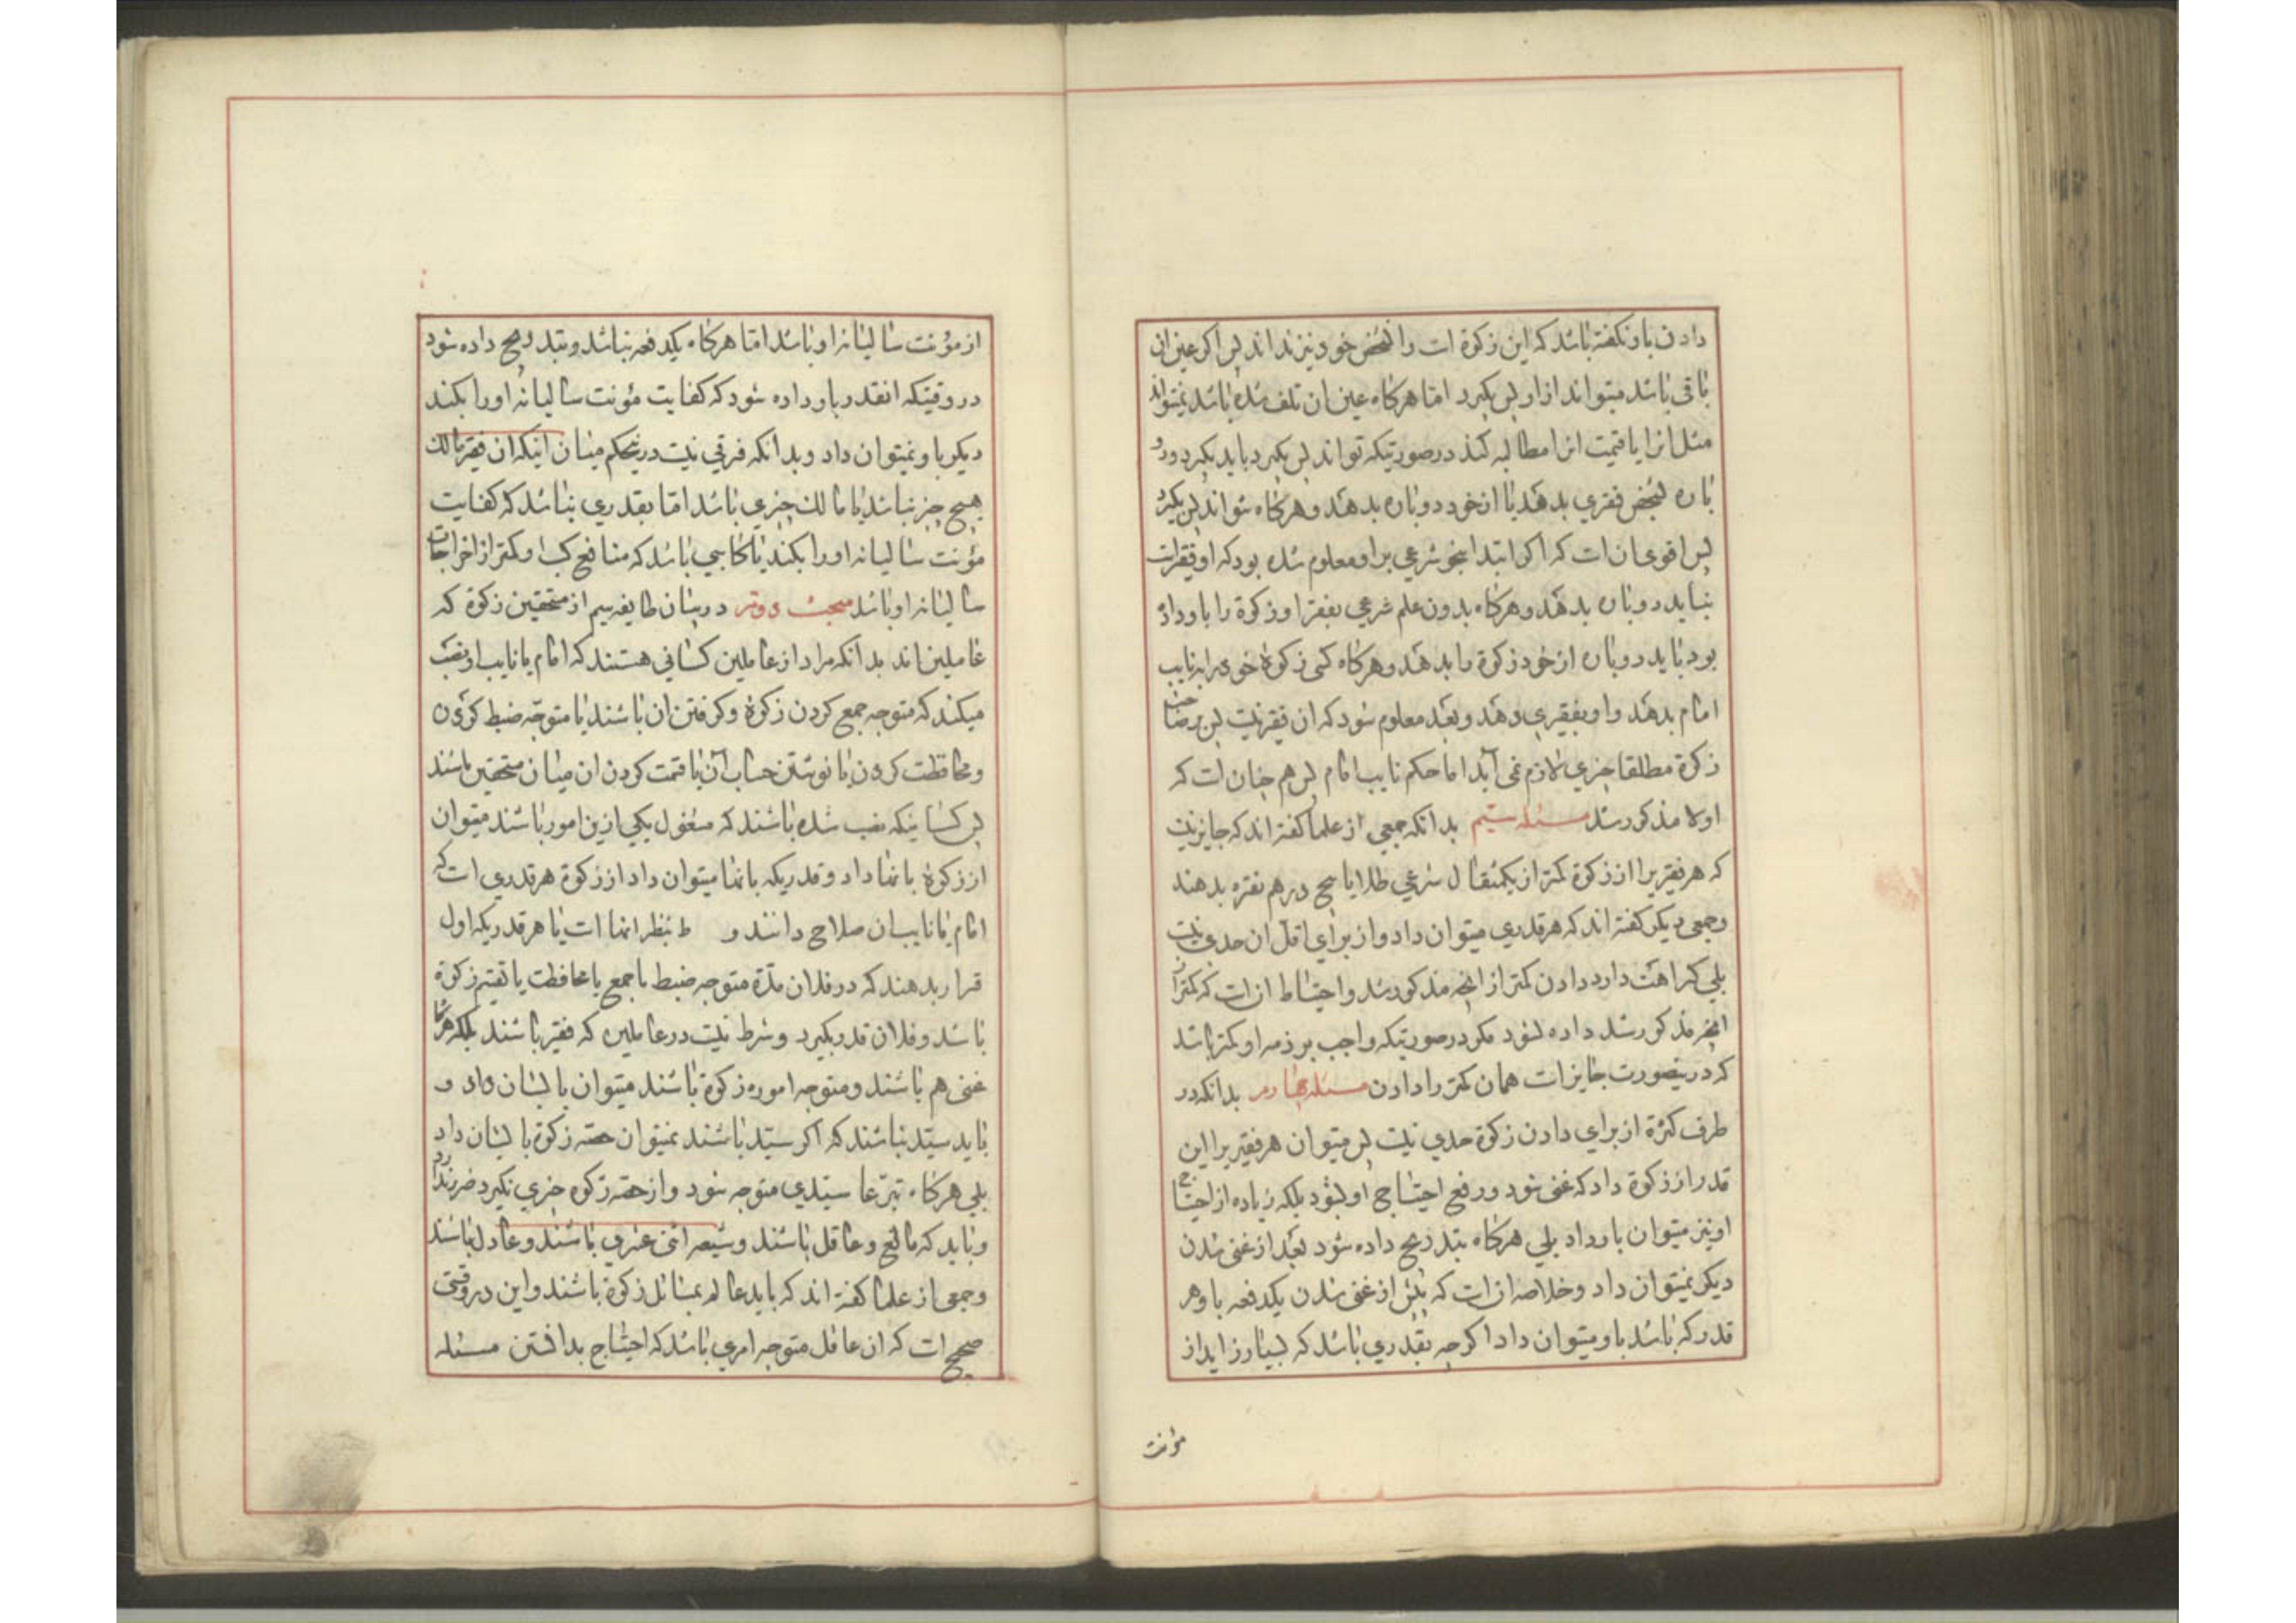 دادن باو نکفته باشد که این زکوة است و ان شخص خود نیز نداند پس اکر عین ان
باقی باشد میتواند از او پس بکیرد اما هرکاه عین ان تلف شده باشد نمیتواند
مثل انرا یا قیمت انرا مطالبه کند در صورتیکه تواند پس بکیرد باید بکیرد و دو
باره بشخص فقیری بدهد یا از خود دوباره بدهد و هرکاه نتواند پس بکیرد
پس اقوی ان است که اکر ابتدا بنحو شرعی بر او معلوم شده بود که او فقیر است
نباید دوباره بدهد و هرکاه بدون علم شرعی بفقر او زکوة را باو داد
بود باید دوباره از خود زکوة را بدهد و هرکاه کسی زکوة خود را بنایب
امام بدهد و او بفقیری دهد و بعد معلوم شود که ان فقیر نیست پس بر صاحب
زکوة مطلقا چیزی لازم نمی آید اما حکم نایب امام پس هم چنان است که
اولا مذکور شد مسئله سیم بدانکه جمعی از علما کفته اند که جایز نیست
که هر فقیر را از زکوة کمتر از یکمثقال شرعی طلا یا پنج درهم نقره بدهند
و جمعی دیکر کفته اند که هر قدری میتوان داد و از برای اقل ان حدی نیست
بلی کراهت دارد دادن کمتر از انچه مذکور شد و احتیاط ان است که کمتر از
انچه مذکور شد داده نشود مکر در صورتیکه واجب بر ذمه او کمتر باشد
که در ینصورت جایز است همان کمتر را دادن مسئله چهارم بدانکه در
طرف کثرة از برای دادن زکوة حدی نیست پس میتوان هر فقیر را این
قدر از زکوة داد که غنی شود و رفع احتیاج او بشود بلکه زیاده از احتیاج
او نیز میتوان باو داد بلی هرکاه بتدریج داده شود بعد از غنی شدن
دیکر نمیتوان داد و خلاصه ان است که پیش از غنی شدن یکدفعه باو هر
قدر که باشد باو میتوان داد اکر چه بقدری باشد که بسیار زاید از
مؤنت
از مؤنت سالیانه او باشد اما هرکاه یکدفعه نباشد و بتدریج داده شود
در وقتیکه انقدر باو داده شود که کفایت مؤنت سالیانه او را بکند
دیکر باو نمیتوان داد و بدانکه فرقی نیست در ینحکم میان اینکه ان فقیر مالک
هیچ چیز نباشد یا مالک چیزی باشد اما بقدری نباشد که کفایت
مؤنت سالیانه او را بکند یا کاسبی باشد که منافع کسب او کمتر از اخراجات
سالیانه او باشد مبحث دویم در بیان طایفه سیم از مستحقین زکوة که
عاملین اند بدانکه مراد از عاملین کسانی هستند که امام یا نایب او نصب
میکند که متوجه جمع کردن زکوة و کرفتن ان باشند یا متوجه ضبط کردن
و محافظت کردن یا نوشتن حساب آن یا قسمت کردن ان میان مستحقین باشند
پس کسانیکه نصب شده باشند که مشغول یکی ازین امور باشند میتوان
از زکوة بانها داد و قدریکه بانها میتوان داد از زکوة هر قدری است که
امام یا نایبان صلاح دانند و ط بنظر انها است یا هر قدریکه اول
قرار بدهند که در فلان مدة متوجه ضبط یا جمع یا محافظت یا تقسیم زکوة
باشد و فلان قدر بکیرد و شرط نیست در عاملین که فقیر باشند بلکه هرکاه
غنی هم باشند و متوجه اموره زکوة باشند میتوان بایشان داد و
باید سید نباشند که اکر سید باشند نمیتوان حصه زکوة بایشان داد
بلی هرکاه تبرعا سیدی متوجه شود و از حصه زکوه چیزی نکیرد ضرر ندارد
و باید که بالغ و عاقل باشند و شیعه اثنی عشری باشند و عادل باشند
و جمعی از علما کفته اند که باید عالم بمسائل زکوة باشند و این در وقتی
صحیح است که ان عامل متوجه امری باشد که احتیاج بدانستن مسئله